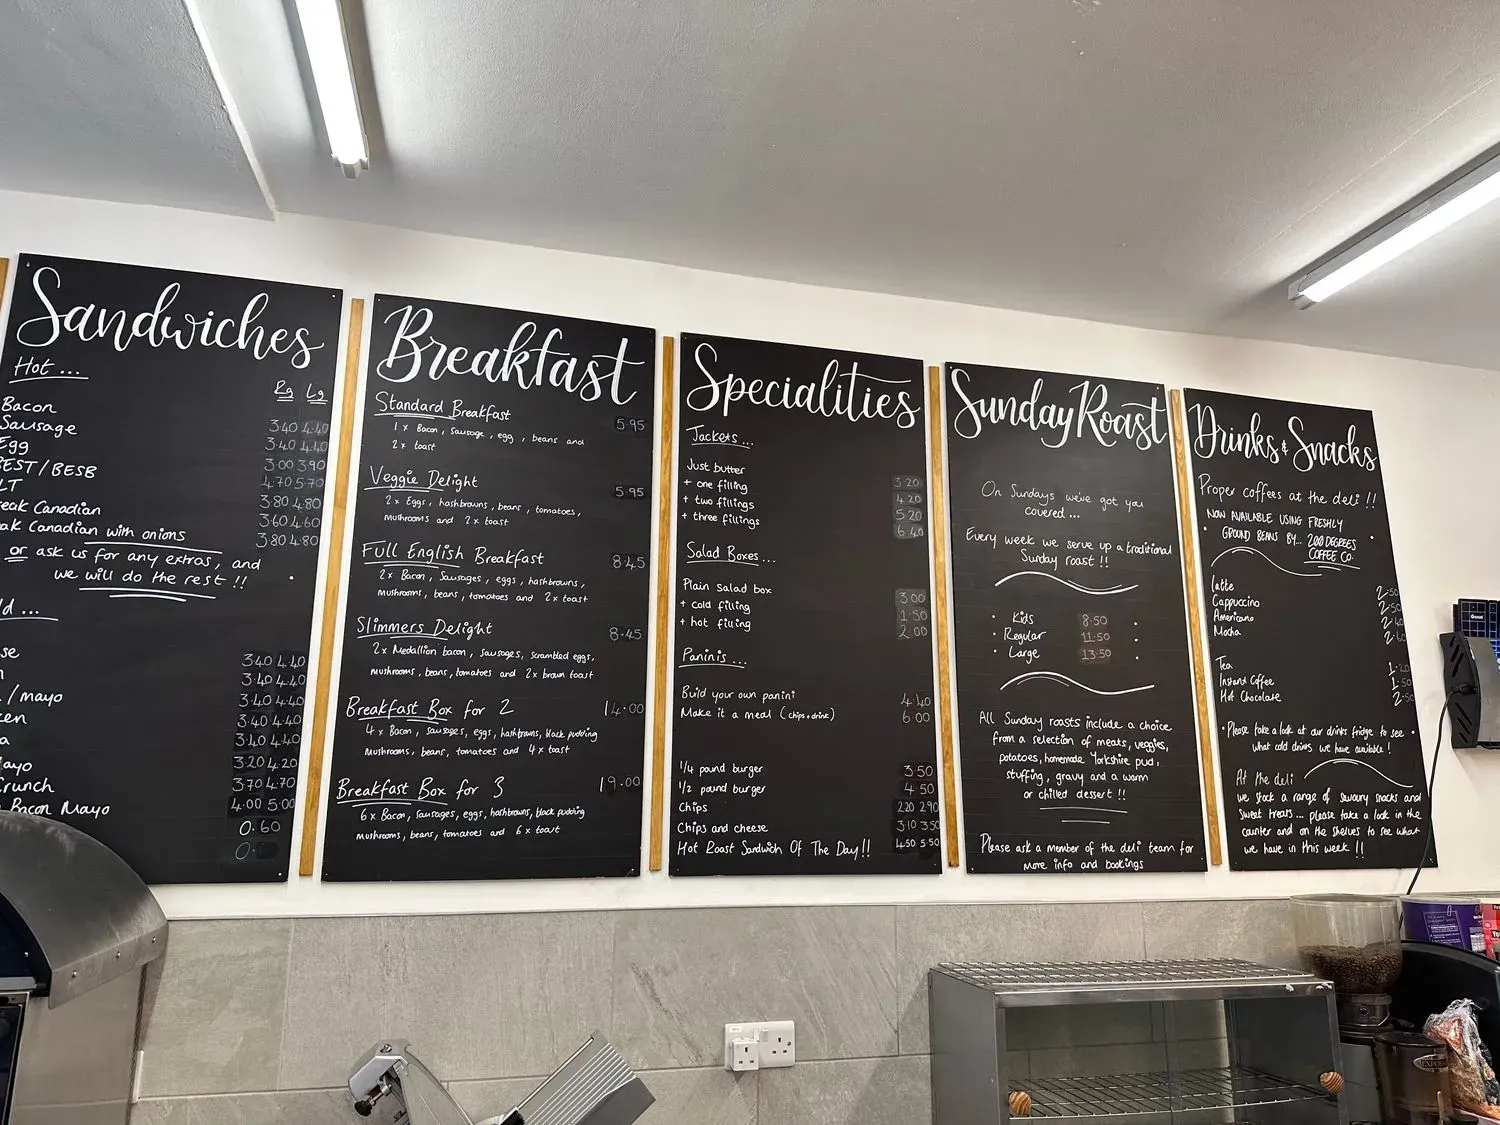 Sandwiches
Hot ...
Rg Lg
Bacon 3.40 4.40
Sausage 3.40 4.40
Egg 3.00 3.90
EST / BESB 4.70 5.70
LT 3.80 4.80
eak Canadian 3.60 4.60
ak Canadian with onions 3.80 4.80
or ask us for any extras, and
we will do the rest !!
ld ...
se 3.40 4.40
3.40 4.40
/ mayo 3.40 4.40
ken 3.40 4.40
a 3.40 4.40
ayo 3.20 4.20
crunch 3.70 4.70
Bacon Mayo 4.00 5.00
0.60
0.
Breakfast
Standard Breakfast 5.95
1 x Bacon, Sausage, egg, beans and
2 x toast
Veggie Delight 5.95
2 x Eggs, hashbrowns, beans, tomatoes,
mushrooms and 2 x toast
Full English Breakfast 8.45
2x Bacon, Sausages, eggs, hashbrowns,
mushrooms, beans, tomatoes and 2x toast
Slimmers Delight 8.45
2x Medallion bacon, sausages, scrambled eggs,
mushrooms, beans, tomatoes and 2x brown toast
Breakfast Box for 2 14.00
4 x Bacon, sausages, eggs, hashbrowns, black pudding
mushrooms, beans, tomatoes and 4 x toast
Breakfast Box for 3 19.00
6 x Bacon, sausages, eggs, hashbrowns, black pudding
mushrooms, beans, tomatoes and 6 x toast
Specialities
Jackets ...
Just butter 3.20
+ one filling 4.20
+ two fillings 5.20
+ three fillings 6.40
Salad Boxes ...
Plain salad box 3.00
+ cold filling 1.50
+ hot filling 2.00
Paninis ...
Build your own panini 4.40
Make it a meal (chips + drink) 6.00
1/4 pound burger 3.50
1/2 pound burger 4.50
Chips 2.20 2.90
Chips and cheese 3.10 3.50
Hot Roast Sandwich Of The Day!! 4.50 5.50
Sunday Roast
On Sundays we've got you
covered ...
Every week we serve up a traditional
Sunday roast !!
• Kids 8.50 •
• Regular 11.50 •
• Large 13.50 •
All Sunday roasts include a choice
from a selection of meats, veggies,
potatoes, homemade Yorkshire pud,
stuffing, gravy and a warm
or chilled dessert !!
Please ask a member of the deli team for
more info and bookings
Drinks & Snacks
Proper coffees at the deli !!
NOW AVAILABLE USING FRESHLY
GROUND BEANS BY... 200 DEGREES
COFFEE CO.
Latte 2.50
Cappuccino 2.50
Americano 2.40
Mocha 2.60
Tea 1.20
Instant Coffee 1.50
Hot Chocolate 2.50
• Please take a look at our drinks fridge to see •
what cold drinks we have available !
At the deli
we stock a range of savoury snacks and
sweet treats ... please take a look in the
counter and on the shelves to see what
we have in this week !!